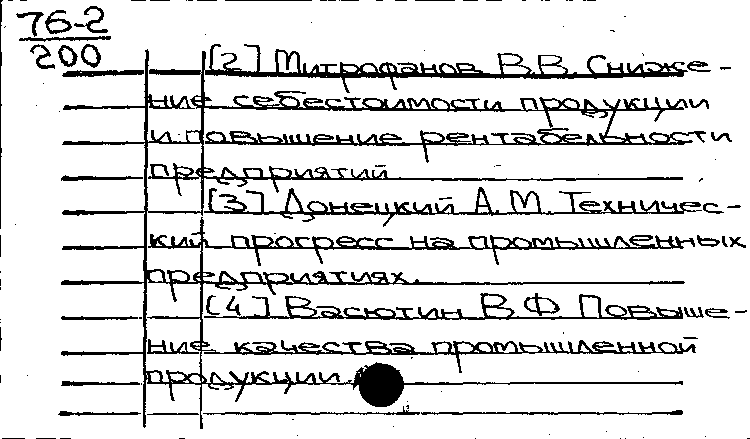 76-2
200
[2] Митрофанов В.В. Сниже-
ние себестоимости продукции
и повышение рентабельности
предприятий.
[3] Донецкий А.М. Техничес-
кий прогресс на промышленных
предприятиях.
[4] Васютин В.Ф. Повыше-
ние качества промышленной
продукции.